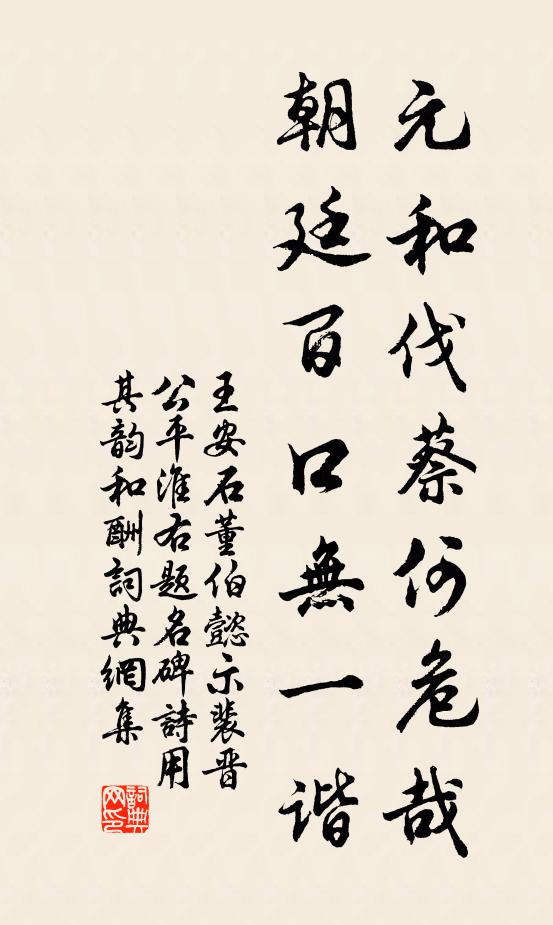 元和伐蔡何危哉
朝廷百口無一谐
王安石董伯懿示裴晋
公平淮右题名碑詩用
其韵和酬詞典網集
詞典网印